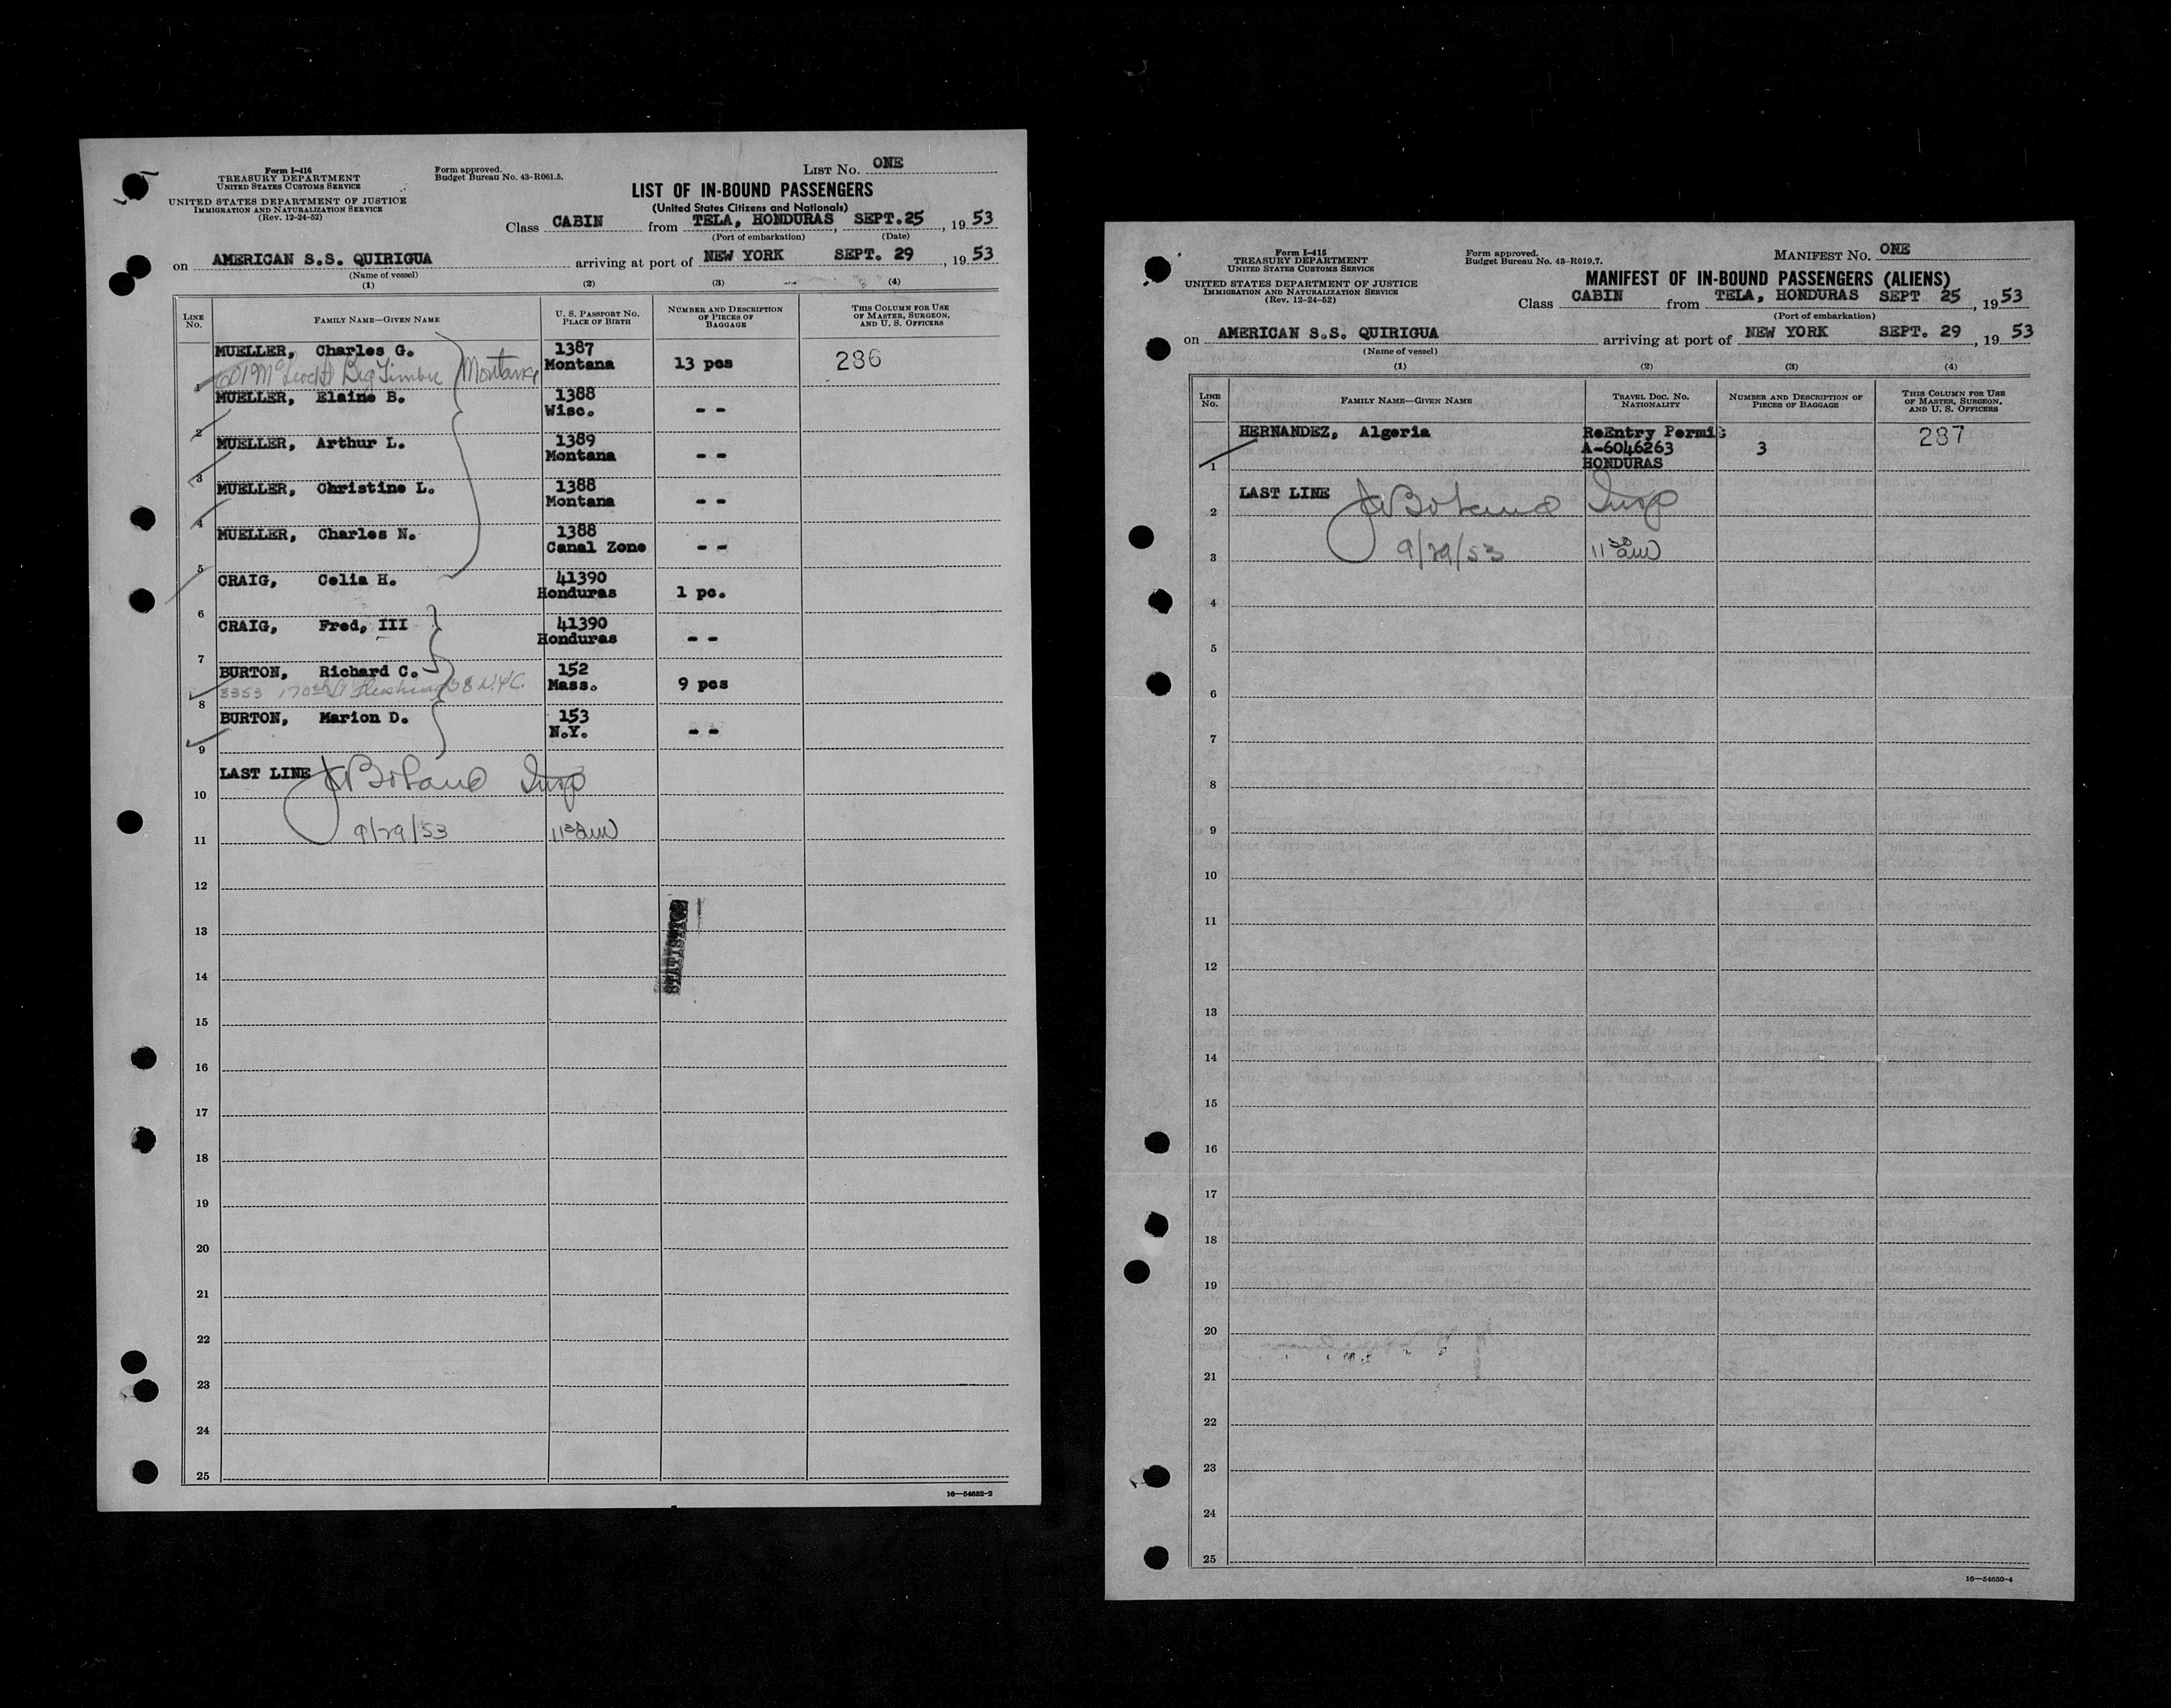 Form I-416
TREASURY DEPARTMENT
UNITED STATES CUSTOMS SERVICE
UNITED STATES DEPARTMENT OF JUSTICE
IMMIGRATION AND NATURALIZATION SERVICE
(Rev. 12-24-52)
Form approved.
Budget Bureau No. 43-R061.5.
LIST NO. ONE
LIST OF IN-BOUND PASSENGERS
(United States Citizens and Nationals)
Class CABIN from TELA, HONDURAS, SEPT.25, 1953
(Port of embarkation) (Date)
on AMERICAN S.S. QUIRIGUA arriving at port of NEW YORK SEPT. 29, 1953
(Name of vessel)
(1) (2) (3) (4)
LINE NO. FAMILY NAME—GIVEN NAME U. S. PASSPORT NO. PLACE OF BIRTH NUMBER AND DESCRIPTION OF PIECES OF BAGGAGE THIS COLUMN FOR USE OF MASTER, SURGEON, AND U. S. OFFICERS
MUELLER, Charles G. 1387
Montana 13 pcs 286
1 Big Timber Montana
MUELLER, Elaine B. 1388
Wisc. - -
2
MUELLER, Arthur L. 1389
Montana - -
3
MUELLER, Christine L. 1388
Montana - -
4
MUELLER, Charles N. 1388
Canal Zone - -
5
CRAIG, Celia H. 41390
Honduras 1 pc.
6
CRAIG, Fred, III 41390
Honduras - -
7
BURTON, Richard C. 152
Mass. 9 pcs
3353 170th St Flushing 58 N.Y.C.
8
BURTON, Marion D. 153
N.Y. - -
9
LAST LINE J Boland Insp
10
9/29/53 11 30 am
11
12
13
STATISTICS
14
15
16
17
18
19
20
21
22
23
24
25
16—54652-2
Form I-415
TREASURY DEPARTMENT
UNITED STATES CUSTOMS SERVICE
UNITED STATES DEPARTMENT OF JUSTICE
IMMIGRATION AND NATURALIZATION SERVICE
(Rev. 12-24-52)
Form approved.
Budget Bureau No. 43-R019.7.
MANIFEST NO. ONE
MANIFEST OF IN-BOUND PASSENGERS (ALIENS)
Class CABIN from TELA, HONDURAS SEPT 25, 1953
(Port of embarkation)
on AMERICAN S.S. QUIRIGUA arriving at port of NEW YORK SEPT. 29, 1953
(Name of vessel)
(1) (2) (3) (4)
LINE NO. FAMILY NAME—GIVEN NAME TRAVEL DOC. NO. NATIONALITY NUMBER AND DESCRIPTION OF PIECES OF BAGGAGE THIS COLUMN FOR USE OF MASTER, SURGEON, AND U. S. OFFICERS
HERNANDEZ, Algeria ReEntry Permit 287
A-6046263 3
1 HONDURAS
LAST LINE J Boland Insp
2
9/29/53 11 30 am
3
4
5
6
7
8
9
10
11
12
13
14
15
16
17
18
19
20
21
22
23
24
25
16—54650-4